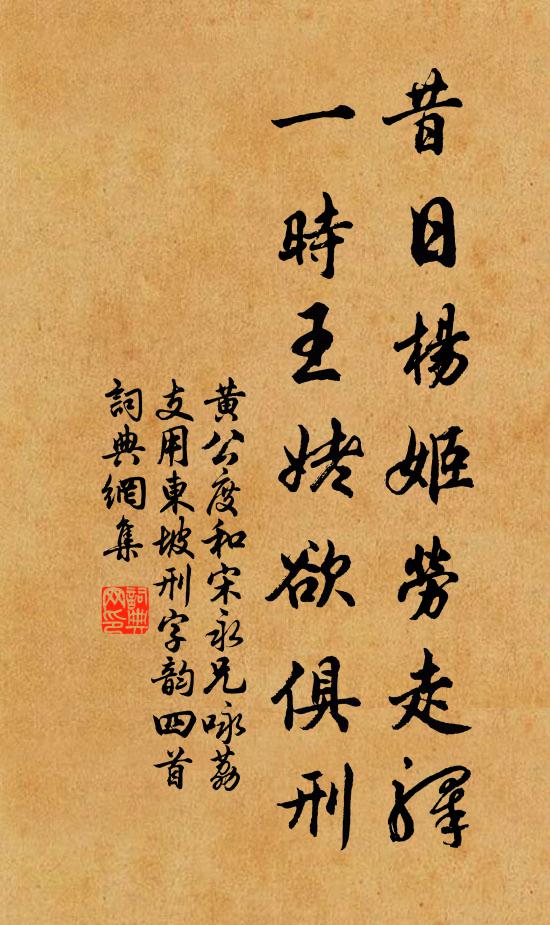 昔日楊姬勞走驛
一時王姥欲俱刑
黃公度和宋永兄咏荔
支用東坡刑字韵四首
詞典網集
詞典網印